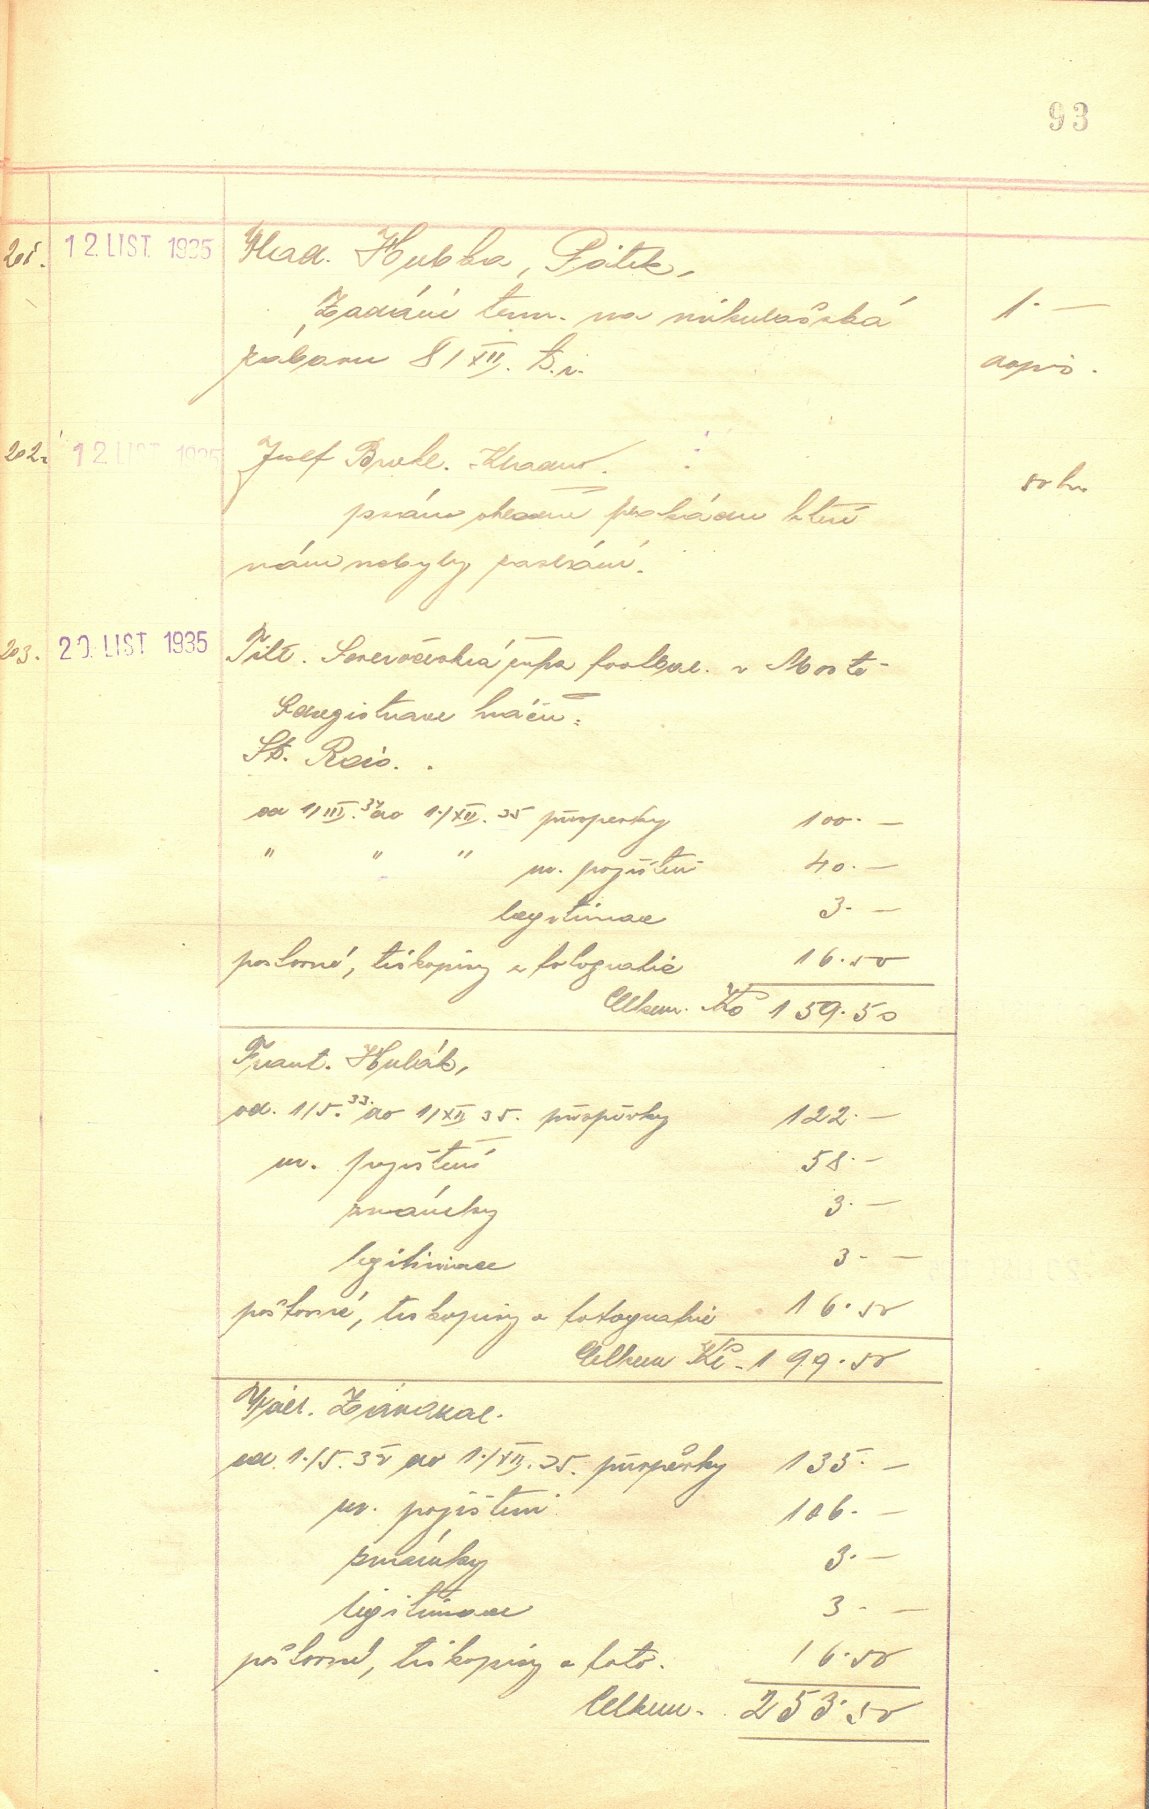 93
201. 12. LIST 1935 Vlad. Hubka, Pátek,
Zadání term. na mikulašská 1.—
zábavu 8/XII. t.r. dopis.
202. 12 LIST 1935 Josef
50 h.
nám nebyly zaslání.
203. 20. LIST 1935 Titl. Severočeská župa footbal. v Mostě
registrace hráčů:
St. Rais.
od 1/III. 34 do 1./XII. 35 příspěvky 100.—
" " " úr. pojištění 40.—
legitimace 3.—
poštovné, tiskopisy a fotografie 16.50
Celkem. Kč 159.50
Frant. Hubák,
od. 1/5. 33. do 1/XII 35. příspěvky 122.—
úr. pojištění 58.—
známky 3.—
legitimace 3.—
poštovné, tiskopisy a fotografie 16.50
Celkem Kč. 199.50
Václ.
od. 1./5. 32 do 1./XII. 35. příspěvky 135.—
úr. pojištění 106.—
známky 3.—
legitimace 3.—
poštovné, tiskopisy a foto. 16.50
Celkem. 253.50